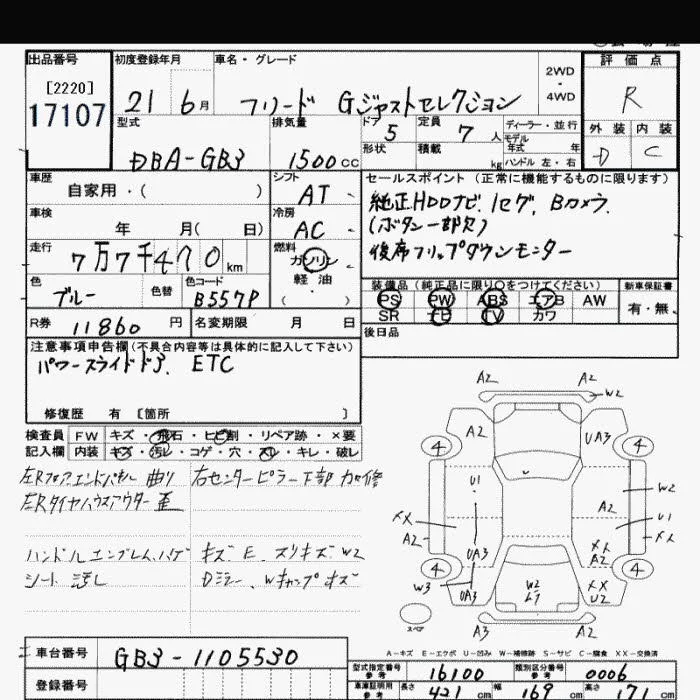 出品番号
[2220]
17107
初度登録年月
21 6月
車名・グレード
フリード Gジャストセレクション
2WD
・
4WD
評価点
R
外装 内装
D C
型式
DBA-GB3
排気量
1500cc
ドア
5
定員
7人
ディーラー・並行
モデル
年式 年
形状
積載
kg
ハンドル 左・右
車歴
自家用・( )
シフト
AT
セールスポイント (正常に機能するものに限ります)
純正HDDナビ、1セグ、Bカメラ
(ボタン一部欠)
後席フリップダウンモニター
車検
年 月( 日)
冷房
AC
走行
7万7千470km
燃料
ガソリン
軽油
( ・ )
色
ブルー
色替
色コード
B557P
装備品 (純正品に限り○をつけてください)
PS PW ABS エアB AW
SR ナビ TV カワ
新車保証書
有・無
R券 11860円
名変期限 月 日
後日品
注意事項申告欄(不具合内容等は具体的に記入して下さい)
パワースライドドア、ETC
修復歴 有 〔箇所 〕
検査員
記入欄
FW キズ・飛石・ヒビ割・リペア跡・×要
内装 キズ・汚レ・コゲ・穴・スレ・キレ・破レ
左Rフロアエンドパネル 曲り
右センターピラー下部 カロ修
左Rタイヤハウスアウター 歪
ハンドルエンブレムハゲ
キズ、E、スリキズ、W2
シート 汚し
Dミラー、Wキャップ キズ
A2 A2
W2
A2 UA3
4 4
U1
W2
A2
XX U1
A2 XX
UA3 XX
A2
4 4
W3 UA3
W2
XX
U2
スペア
A3 A2
A-キズ E-エクボ U-凹み W-補修跡 S-サビ C-腐食 XX-交換済
車台番号
GB3-1105530
登録番号
型式指定番号
参考
16100
類別区分番号
参考
0006
車庫証明用
参考
長さ
421cm
幅
169cm
高さ
171cm